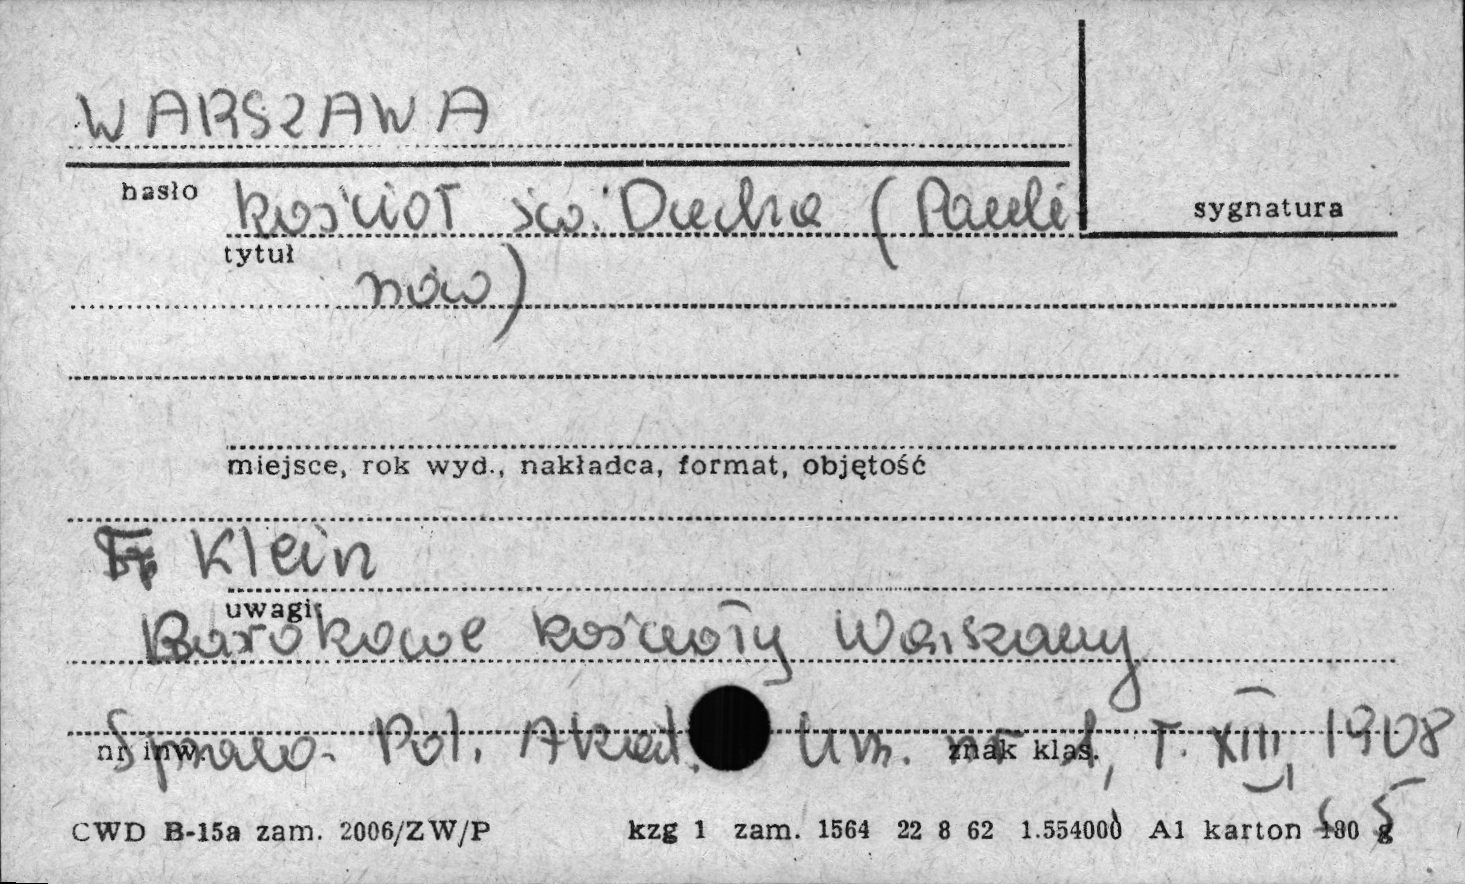 WARSZAWA
hasło kościół św. Ducha (Pauli
sygnatura
tytuł
nów)
miejsce, rok wyd., nakładca, format, objętość
Klein
uwagi:
Barokowe kościoły Warszawy
nr inw. Sprawo. Pol. Akad. Um. nr 1, T. XIII, 1908
znak klas.
CWD B-15a zam. 2006/ZW/P kzg 1 zam. 1564 22 8 62 1.554000 A1 karton 180 g